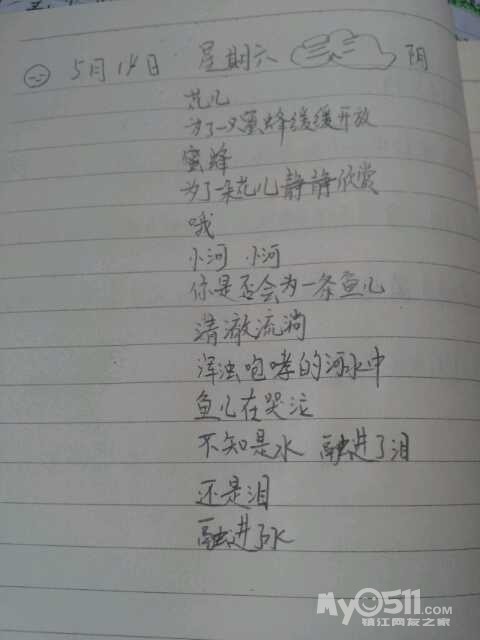 5月14日 星期六 阴
花儿
为了一只蜜蜂缓缓开放
蜜蜂
为了一朵花儿静静欣赏
哦
小河 小河
你是否会为一条鱼儿
清澈流淌
浑浊咆哮的河水中
鱼儿在哭泣
不知是水 融进了泪
还是泪
融进了水
My0511.com
镇江网友之家